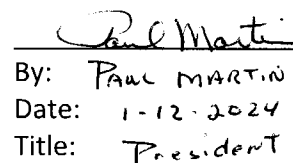 Paul Martin
By: PAUL MARTIN
Date: 1-12-2024
Title: President